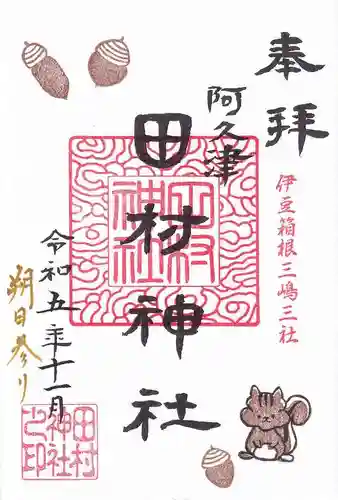 奉拝
伊豆箱根三嶋三社
阿久津
田村神社
田村
神社
令和五年十一月
朔日参り
田村
神社
之印